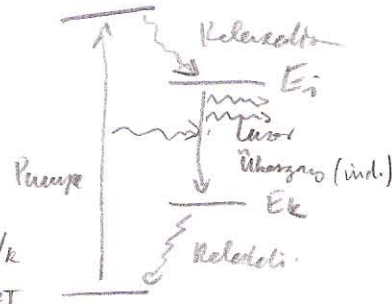 Relaxation
Ei
Laser
Übergang (ind.)
Pumpe
Ek
/k
Relaxati.